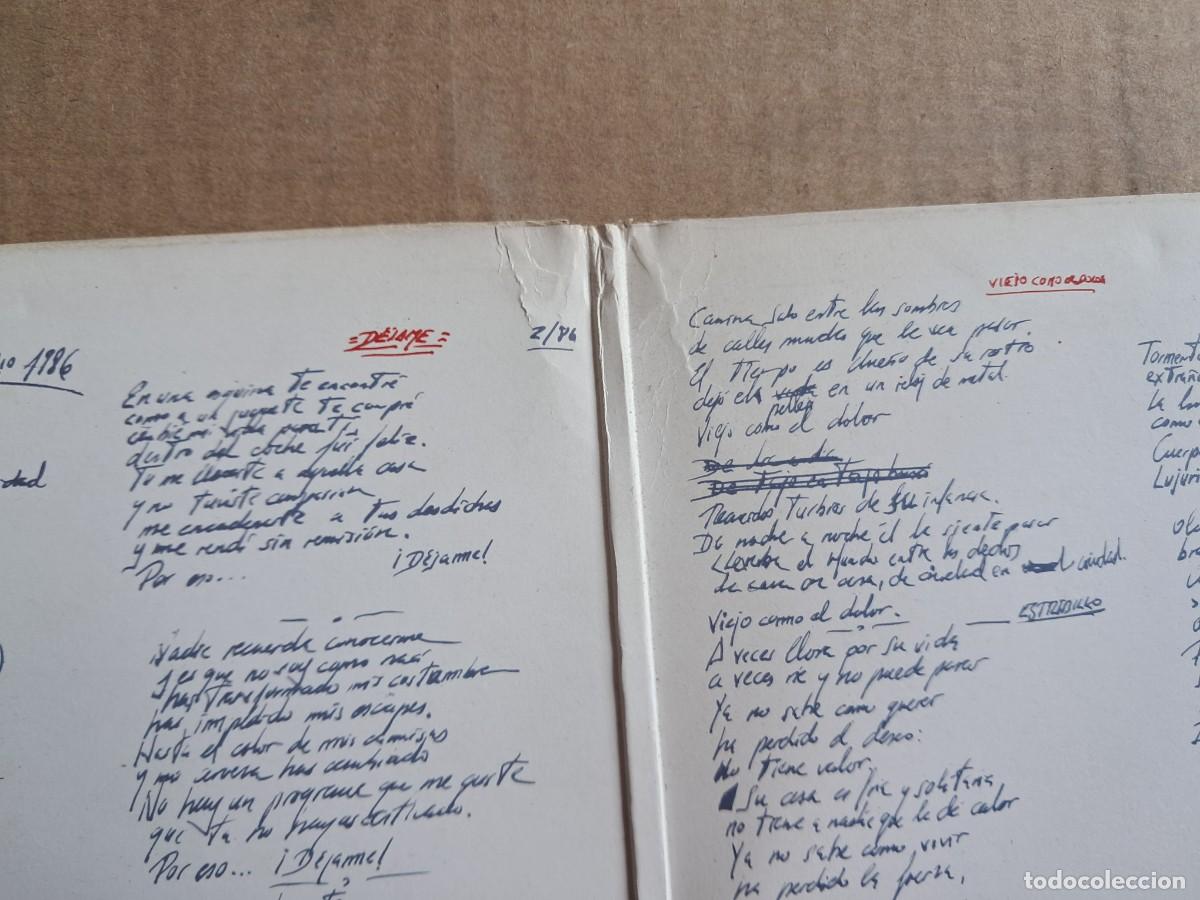 io 1986
=DÉJAME=
2/86
En una esquina te encontré
como a un juguete te compré
cambié mi vida por ti
dentro del coche fuí feliz.
Tu me llevaste a aquella casa
y no tuviste compasión
me encadenaste a tus desdichas
y me rendí sin remisión.
Por eso... ¡Déjame!
Nadie recuerda conocerme
y es que no soy como nací
has transformado mis costumbres
has impedido mis escapes.
Hasta el color de mis camisas
y mi cerveza has cambiado
No hay un programa que me guste
que tú no hayas
Por eso... ¡Déjame!
dad
VIEJO COMO EL DOLOR
Camina solo entre las sombras
de calles mudas que le ven pasar.
El tiempo es dueño de su rostro
dejó ella en un reloj de metal.
Viejo como el dolor
Recuerdos turbios de su infancia.
De noche a noche él le siente pasar
llevaba el mundo entre los dedos
de casa en casa, de ciudad en ciudad.
Viejo como el dolor.
ESTRIBILLO
A veces llora por su vida
a veces ríe y no puede parar
Ya no sabe como querer
ha perdido el deseo:
No tiene valor,
Su casa es fría y solitaria
no tiene a nadie que le dé calor
Ya no sabe como vivir
ha perdido la fuerza,
Torment
extrañ
La lu
como
Cuerp
Lujuri
bra
todocoleccion